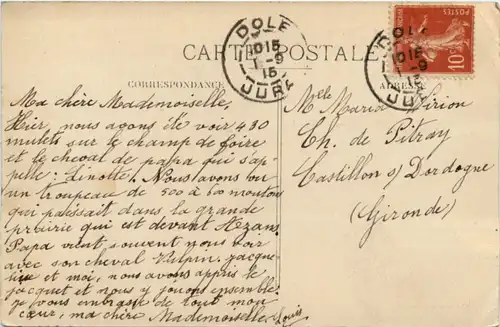 CARTE POSTALE
CORRESPONDANCE
ADRESSE
DOLE
1015
1-9
15
JURA
DOLE
1015
1-9
15
JURA
POSTES
10c
Ma chère Mademoiselle,
Hier, nous avons été voir 430
mulets sur le champ de foire
et le cheval de papa qui s'ap-
pelle: Linotte. Nous avons vu
un troupeau de 500 à 600 moutons
qui paissait dans la grande
prairie qui est devant
Papa vient souvent nous voir
avec son cheval Vulpin. Jacque-
line et moi, nous avons appris le
jacquet et nous y jouons ensemble.
Je vous embrasse de tout mon
cœur, ma chère Mademoiselle, Louis
Melle Maria
Ch. de Pitray
Castillon s/ Dordogne
(Gironde)